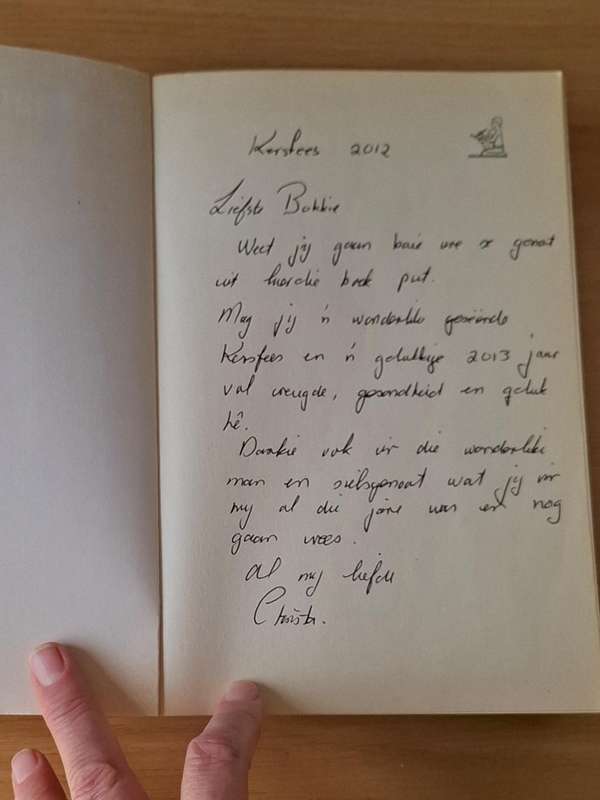 Kersfees 2012
Liefste Bokkie
Weet jy gaan baie ure se genot
uit hierdie boek put.
Mag jy 'n wonderlike geseënde
Kersfees en 'n gelukkige 2013 jaar
vol vreugde, gesondheid en geluk
hê.
Dankie ook vir die wonderlike
man en sielsgenoot wat jy vir
my al die jare was en nog
gaan wees.
Al my liefde
Christa.